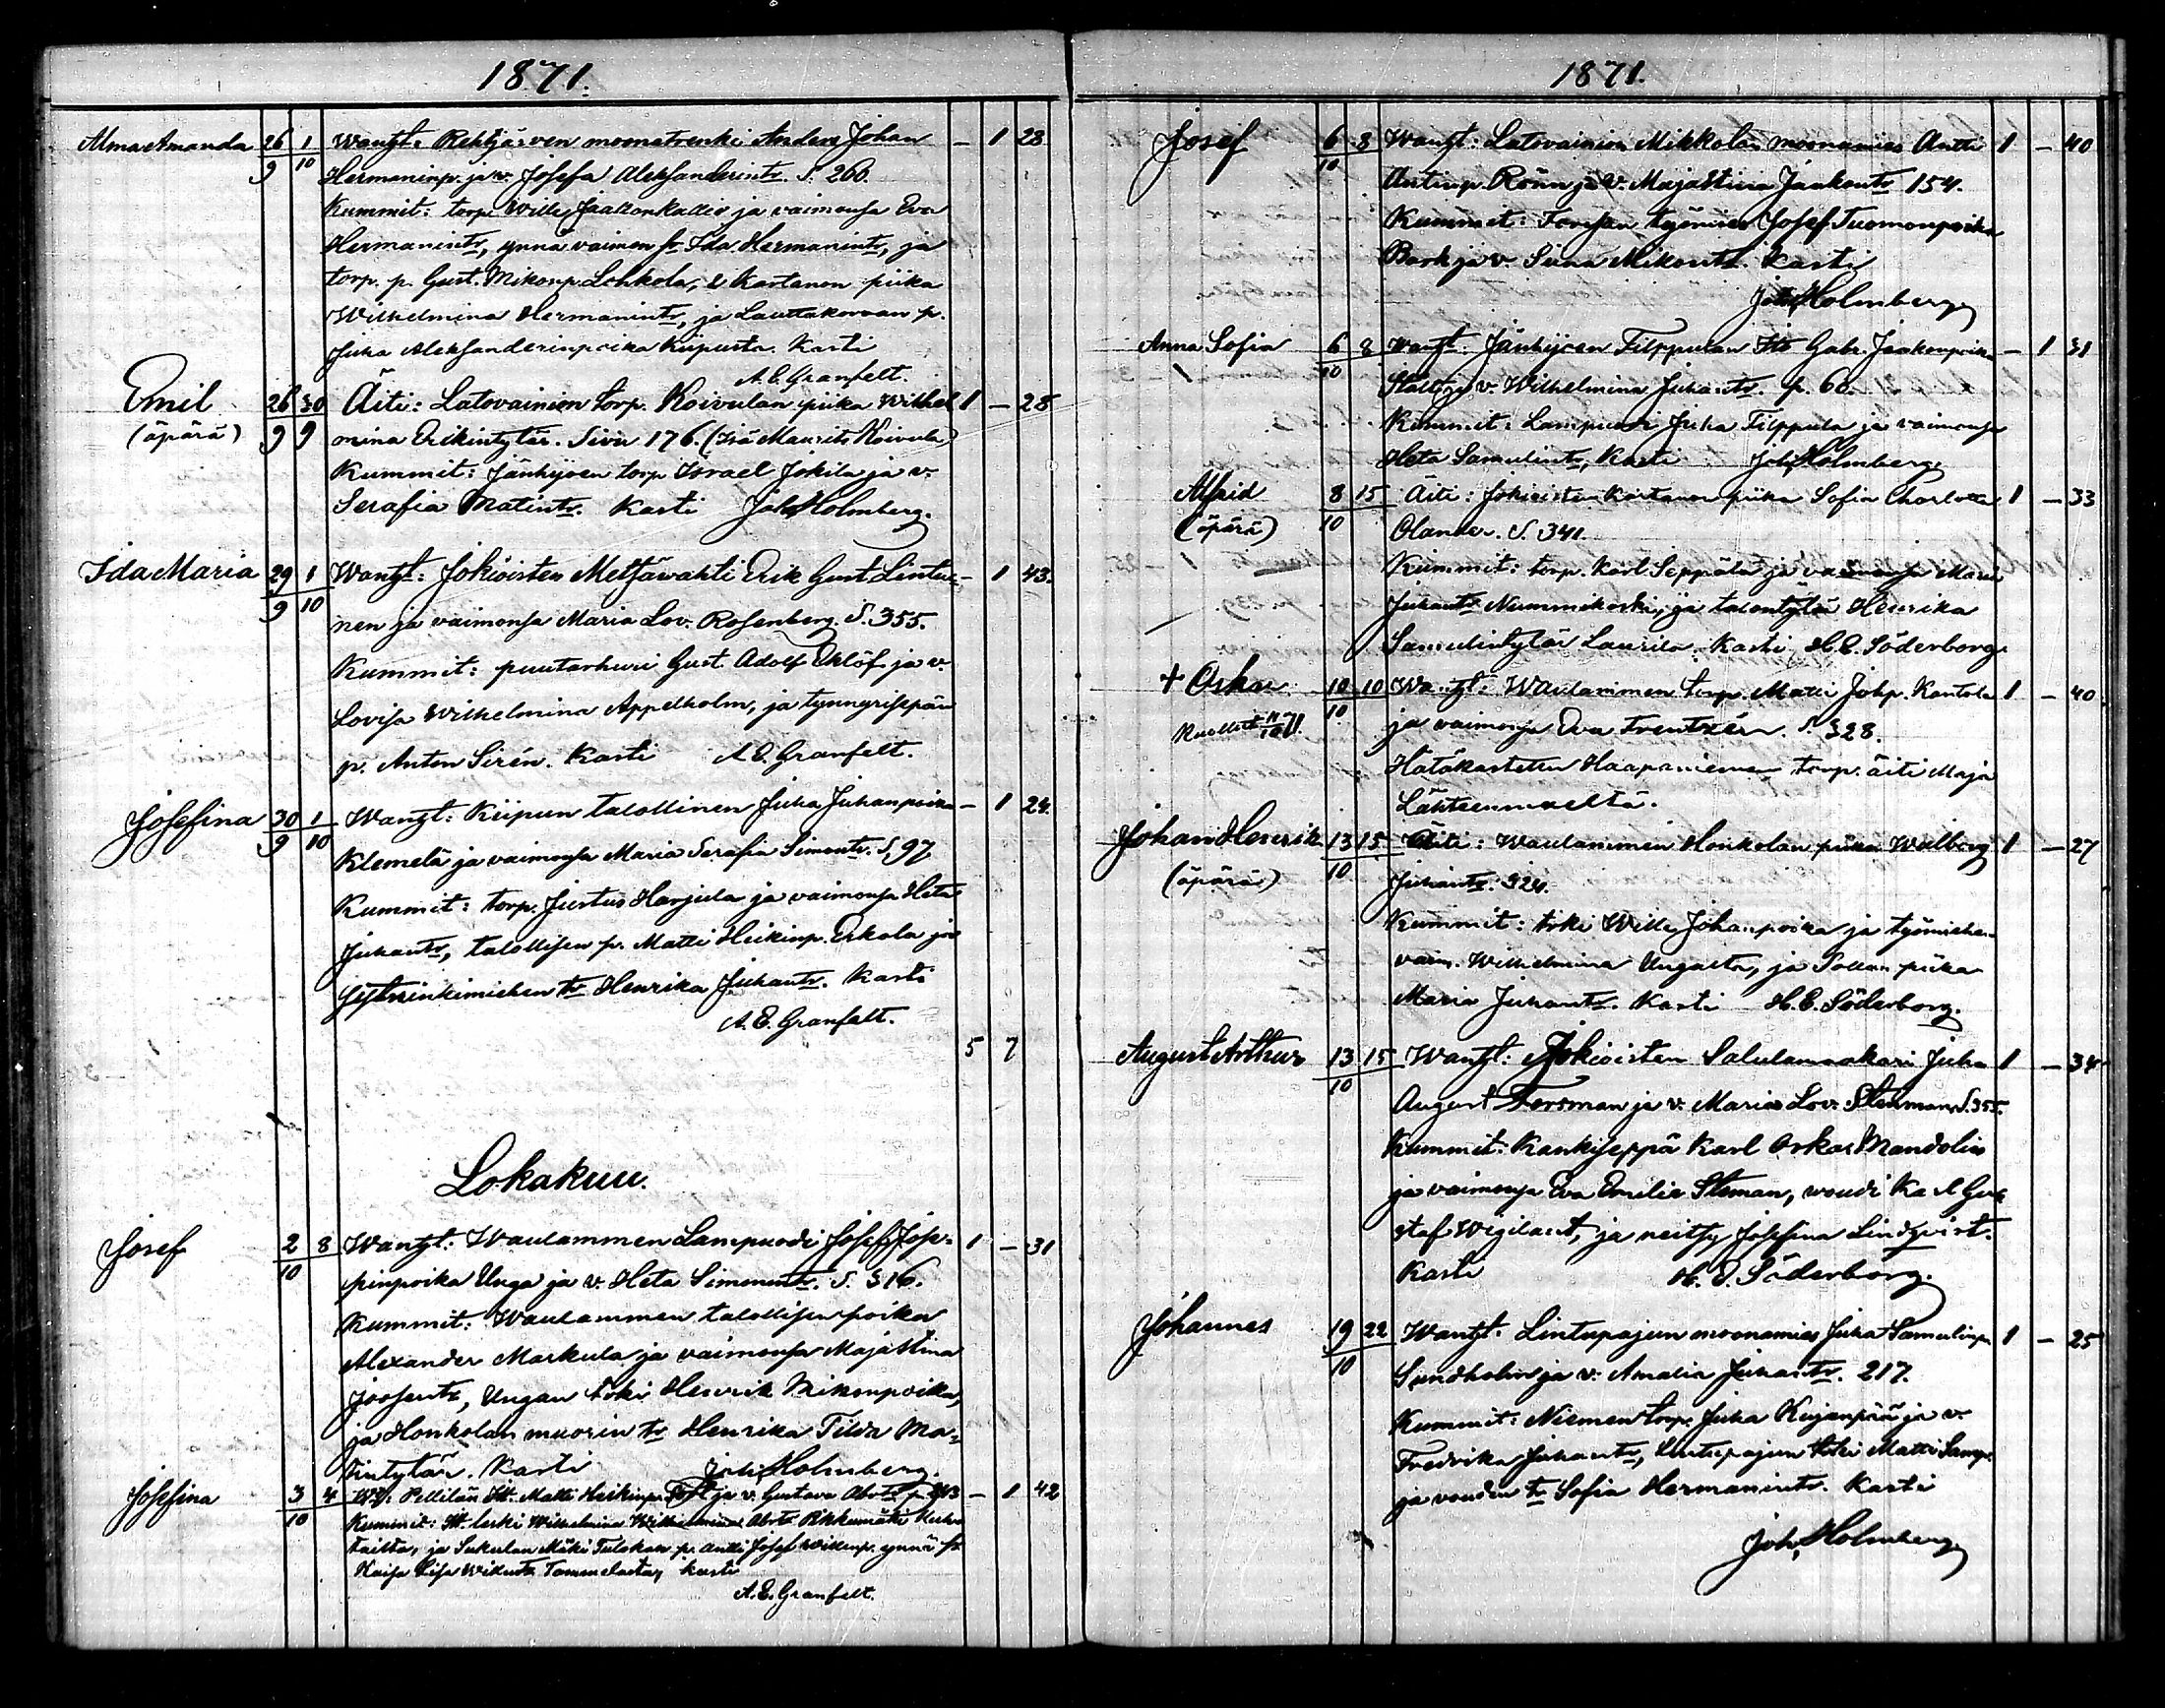 1871.
Alma Amanda 26/9 1/10 Wanht: Rehtijärven moonatrenki Anders Johan – 1 28
Hermaninp. ja v. Josefa Aleksanderintr. S. 260.
Kummit: torp. Wille Jaallonkallio ja vaimonsa Eva
Hermanintr, ynnä vaimon sr Ida Hermanintr, ja
torp. p. Gust. Mikonp. Lehkola, & Kartanon piika
Wilhelmina Hermanintr, ja Lauttakorvan p.
Juha Aleksanderinpoika Kiipusta. Kasti
A. E. Granfelt.
Emil 26/9 30/9 Äiti: Latovainion torp. Koivulan piika Wilhel 1 – 28
(äpärä) mina Erikintytär. Sivu 176. (Isä Maurits Koivula)
Kummit: Jänhijoen torp Israel Jokila ja v.
Serafia Matintr. Kasti Joh. Holmberg.
Ida Maria 29/9 1/10 Wanht: Jokioisten Metsävahti Erik Gust Lintu= – 1 43.
nen ja vaimonsa Maria Lov. Rosenberg. S. 355.
Kummit: puutarhuri Gust. Adolf Eklöf ja v.
Lovisa Wilhelmina Appelholm, ja tynnyriseppän
p. Anton Sirén. Kasti A. E. Granfelt.
Josefina 30/9 1/10 Wanht: Kiipun talollinen Juha Juhanpoika – 1 24.
Klemelä ja vaimonsa Maria Serafia Simontr. S. 97
Kummit: torp. Justus Harjula ja vaimonsa Heta
Juhantr, talollisen p. Matti Heikinp. Erkola ja
tr Henrika Juhantr. Kasti
A. E. Granfelt.
5 7
Lokakuu.
Josef 2/10 8 Wanht: Waulammen Lampuodi Josef Jose= 1 – 31
pinpoika Unga ja v. Heta Simonintr. S. 316.
Kummit: Waulammen talollisen poika
Alexander Markula ja vaimonsa Maja Stina
Joosentr, Ungan trki Henrik Mikonpoika,
ja Honkolan muorin tr Henrika Tilda Ma=
tintytär. Kasti Joh. Holmberg.
Josefina 3/10 4 Wt: Pellilän Itt. Matti Heikinp. ja v. Gustava – 1 42
Kummit: Itt. leski Wilhelmina
ja Sukulan Mäki p. Antti Josef Willenp. ynnä sr
Kaisa Lisa Tammelasta, kasti
A. E. Granfelt.
1871.
Josef 6/10 8 Wanht: Latovainion Mikkolan moonamies Antti 1 – 40
Antinp. Rönn ja v. Maja Stiina Jaakontr 154.
Kummit: Forssan työmies Josef Tuomonpoika
Bork ja v. Siina Mikontr. Kasti
Joh. Holmberg
Anna Sofia 6/10 8 Wanht: Jänhijoen Filppulan Itt Gabr. Jaakonpoika – 1 31
ja v. Wilhelmina Juhantr. p. 60.
Kummit: Lampuodi Juha Filppula ja vaimonsa
Heta Samulintr, Kasti Joh. Holmberg.
Alfrid 8/10 15 Äiti: Jokioisten Kartanon piika Sofia Charlotta 1 – 33
(äpärä) Olander. S. 341.
Kummit: torp. Karl Seppälä ja vaimonsa Maria
Juhantr Nummikoski, ja talontytär Henrika
Samulintytär Laurila. Kasti H. E. Söderborg.
+ Oskar 10/10 10 Wanht: Waulammen torp. Matti Johp. Kantola 1 – 40
Kuollut 11/10 71. ja vaimonsa Eva Frentzén. S. 328.
Hätäkastettu Haapaniemen torp. äiti Maja
Lähteenmaeltä.
Johan Henrik 13/10 15 Äiti: Waulammen Honkolan piika Wilborg 1 – 27
(äpärä) Juhantr. 324.
Kummit: trki Wille Johanpoika ja työmiehen
vaim. Wilhelmina Ungalta, ja piika
Maria Juhantr. Kasti H. E. Söderborg.
August Arthur 13/10 15 Wanht: Jokioisten Satulamaakari Juha 1 – 34
August Forsman ja v. Maria Lov. Stenman S. 355.
Kummit: Kankiseppä Karl Oskar Mandolin
ja vaimonsa Eva Emilia Steman, woudi Karl Gus
staf Wigilant, ja neitsy Josefina Lindqvist.
Kasti H. E. Söderborg.
Johannes 19/10 22 Wanht: Lintupajun moonamies Juha Samulinp. 1 – 25
Sundholm ja v. Amalia Juhantr. 217.
Kummit: Niemen torp. Juha Kujanpää ja v.
Fredrika Juhantr, Lintupajun trki Matti Samp.
ja voudin tr Sofia Hermanintr. Kasti
Joh. Holmberg